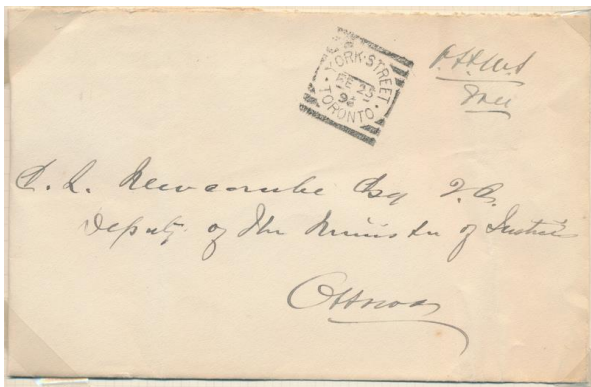 YORK·STREET
FE 23
94
TORONTO
O.H.M.S
Free
E. L. Newcombe Esq Q.C.
Deputy of the Minister of Justice
Ottawa